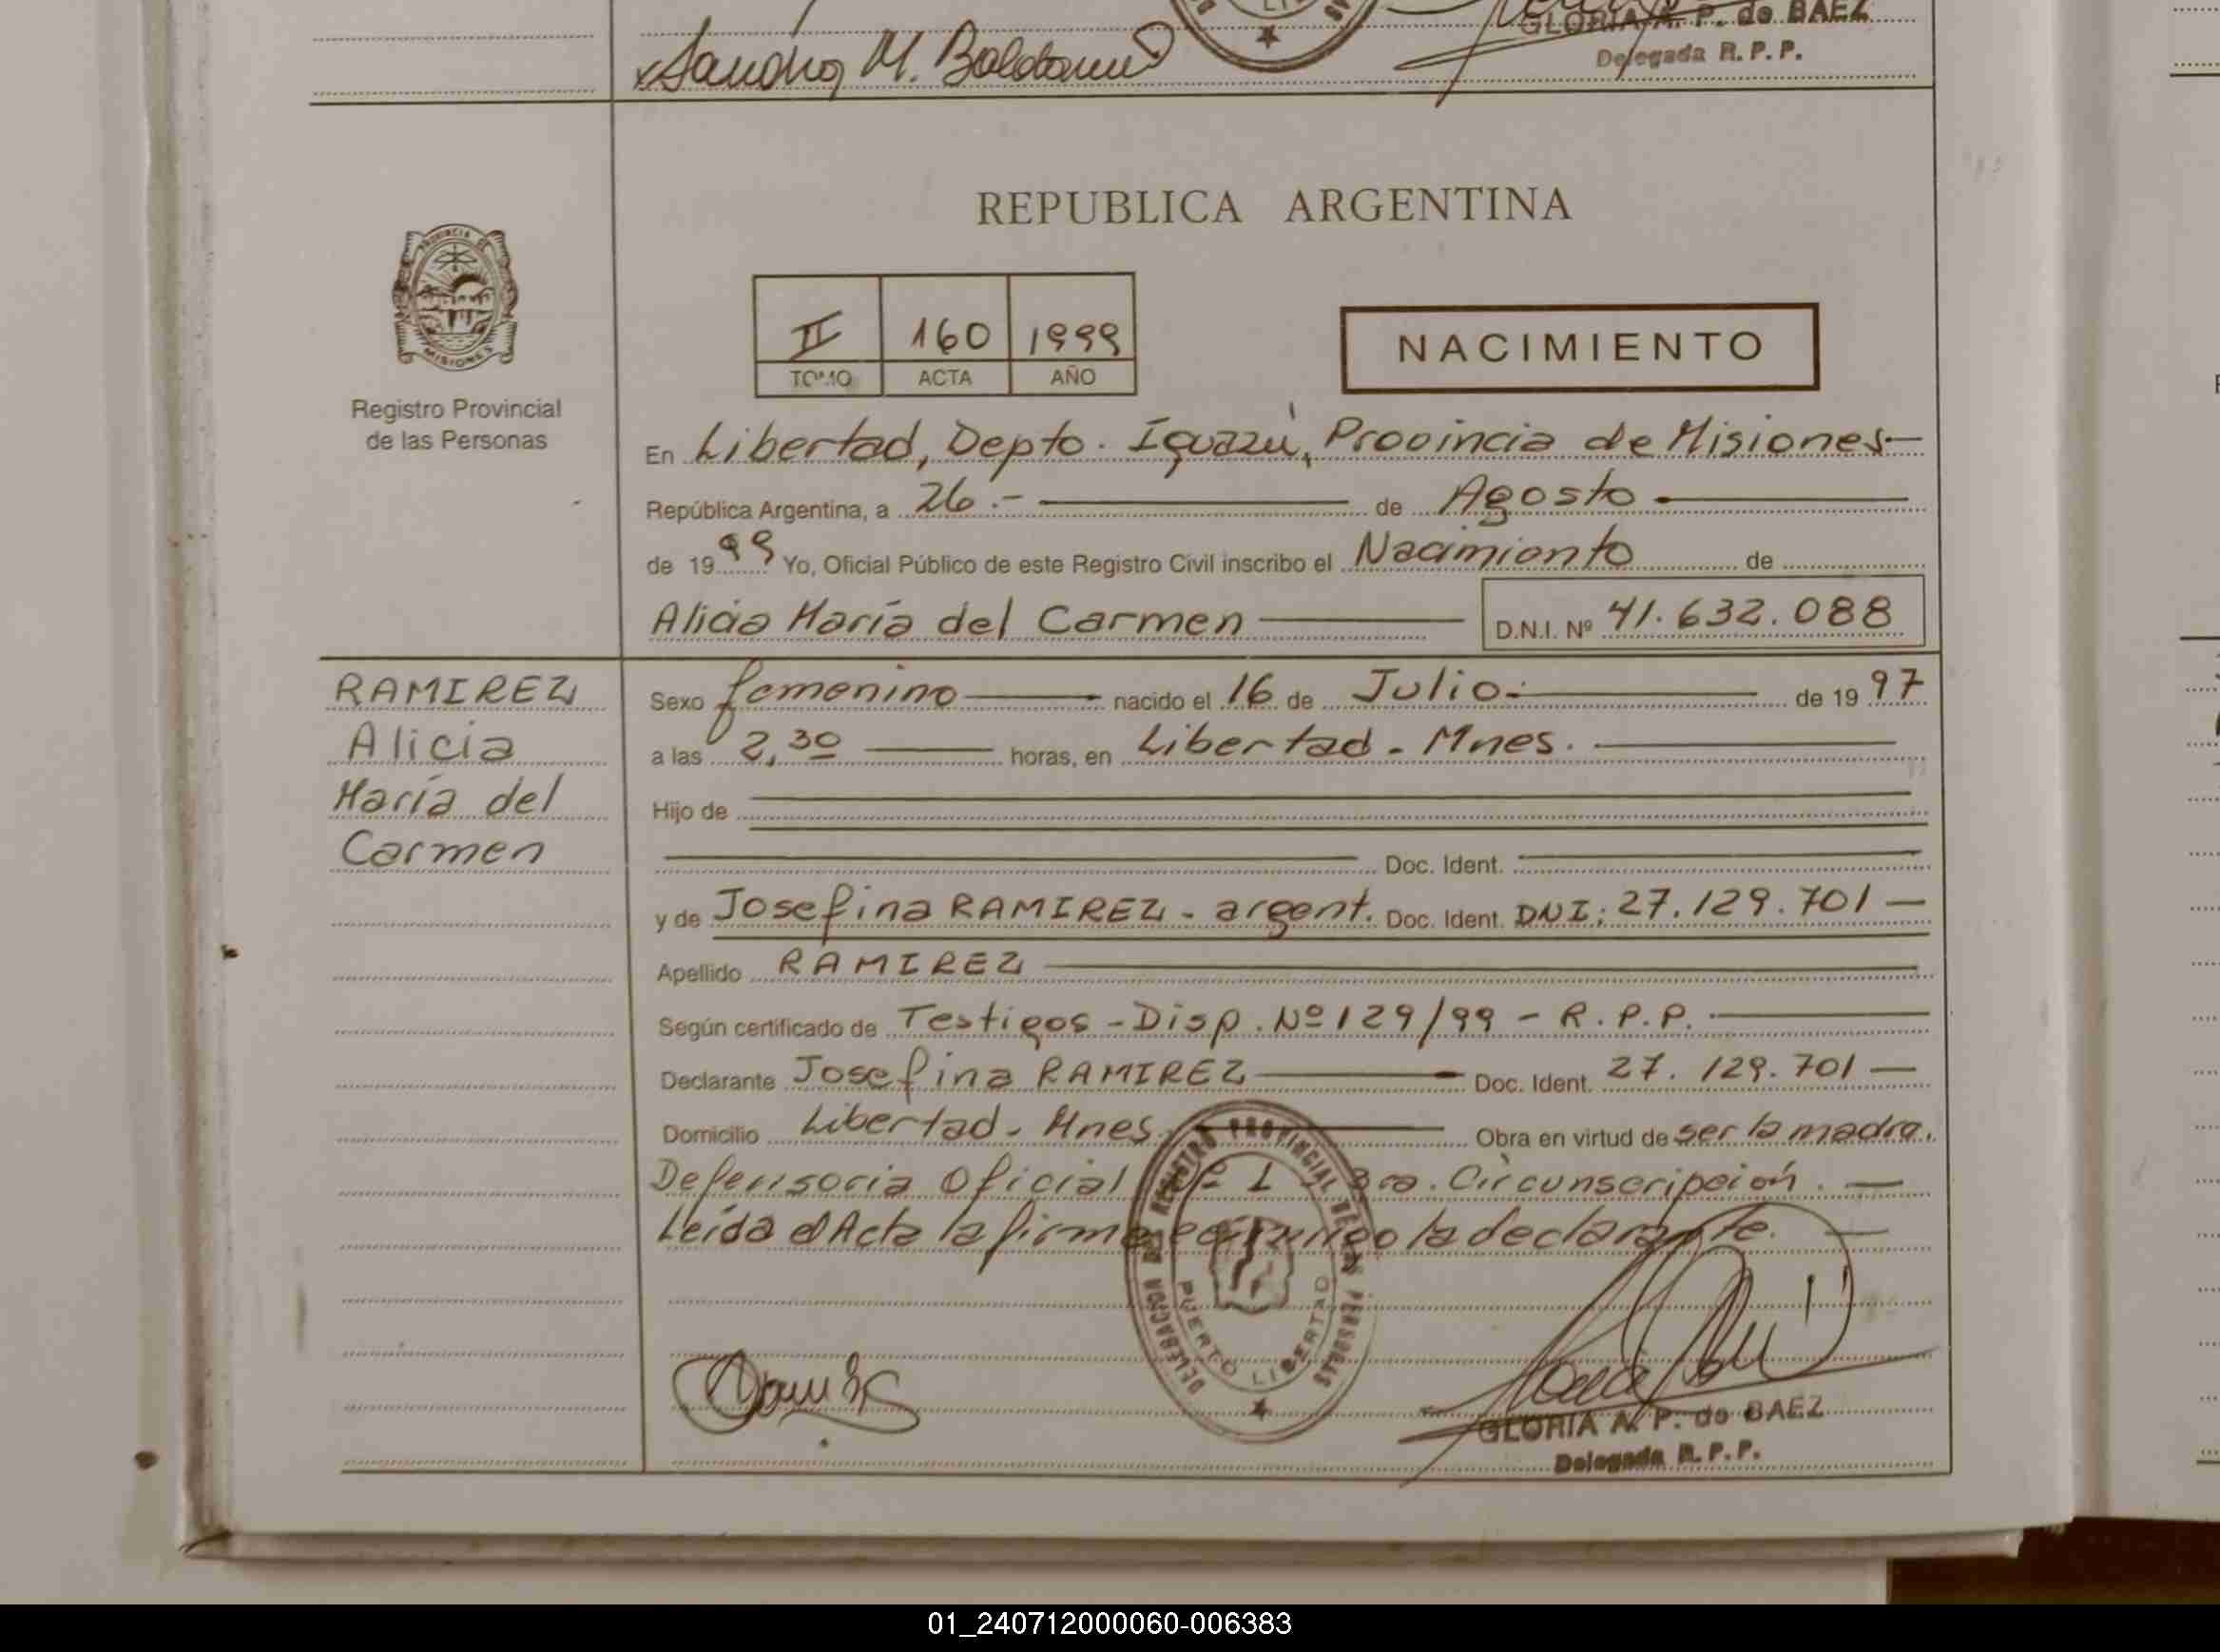 GLORIA A. P. de BAEZ
Delegada R. P. P.
Sandra M.
REPUBLICA ARGENTINA
PROVINCIA DE
MISIONES
Registro Provincial
de las Personas
II 160 1999
TOMO ACTA AÑO
NACIMIENTO
En Libertad, Depto. Iguazú, Provincia de Misiones-
República Argentina, a 26.- de Agosto
de 1999 Yo, Oficial Público de este Registro Civil inscribo el Nacimiento de
Alicia María del Carmen D.N.I. Nº 41.632.088
RAMIREZ
Alicia
María del
Carmen
Sexo femenino nacido el 16 de Julio.- de 1997
a las 2,30 horas, en Libertad - Mnes.
Hijo de
Doc. Ident.
y de Josefina RAMIREZ - argent. Doc. Ident. DNI: 27.129.701 -
Apellido RAMIREZ
Según certificado de Testigos - Disp. Nº 129/99 - R.P.P.
Declarante Josefina RAMIREZ Doc. Ident. 27.129.701 -
Domicilio Libertad - Mnes. Obra en virtud de ser la madre.
Defensoria Oficial Nº 1 3ra. Circunscripción.
Leída el Acta la firma conmigo la declarante.
DELEGACION DEL REGISTRO PROVINCIAL DE LAS PERSONAS
PUERTO LIBERTAD
GLORIA A. P. de BAEZ
Delegada R. P. P.
01_240712000060-006383